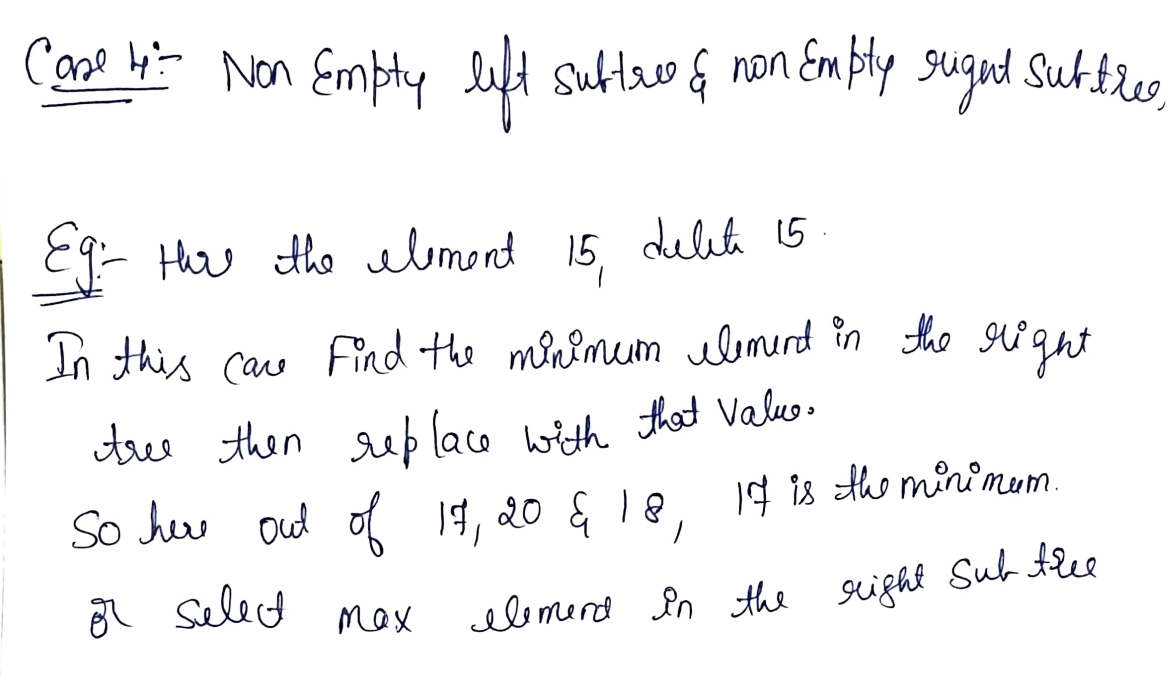 Case 4:- Non Empty left subtree & non Empty right Subtree,
Eg:- Here the element 15, delete 15.
In this case Find the minimum element in the right
tree then replace with that Value.
So here out of 17, 20 & 18, 17 is the minimum.
or select max element in the right Sub tree